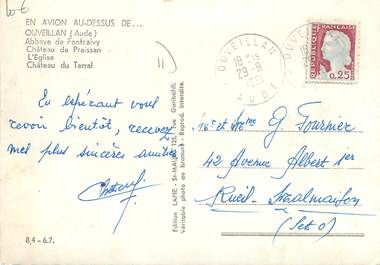 10€
EN AVION AU-DESSUS DE...
OUVEILLAN (Aude)
Abbaye de Fontcalvy
Château de Preissan
L'Eglise
Château du Terral
OUVEILLAN
18 H 15
29 -8
AUDE
REPUBLIQUE FRANÇAISE
0,25
En espérant vous
revoir bientôt, recevez
mes plus sincères amitiés
8,4 - 6.7.
Edition LAPIE - St-MAUR, 125, rue Garibaldi.
Véritable photo au bromure - Reprod. interdite.
Mr et Mme G. Fournier
42 Avenue Albert 1er
Rueil-Malmaison
(S et O)